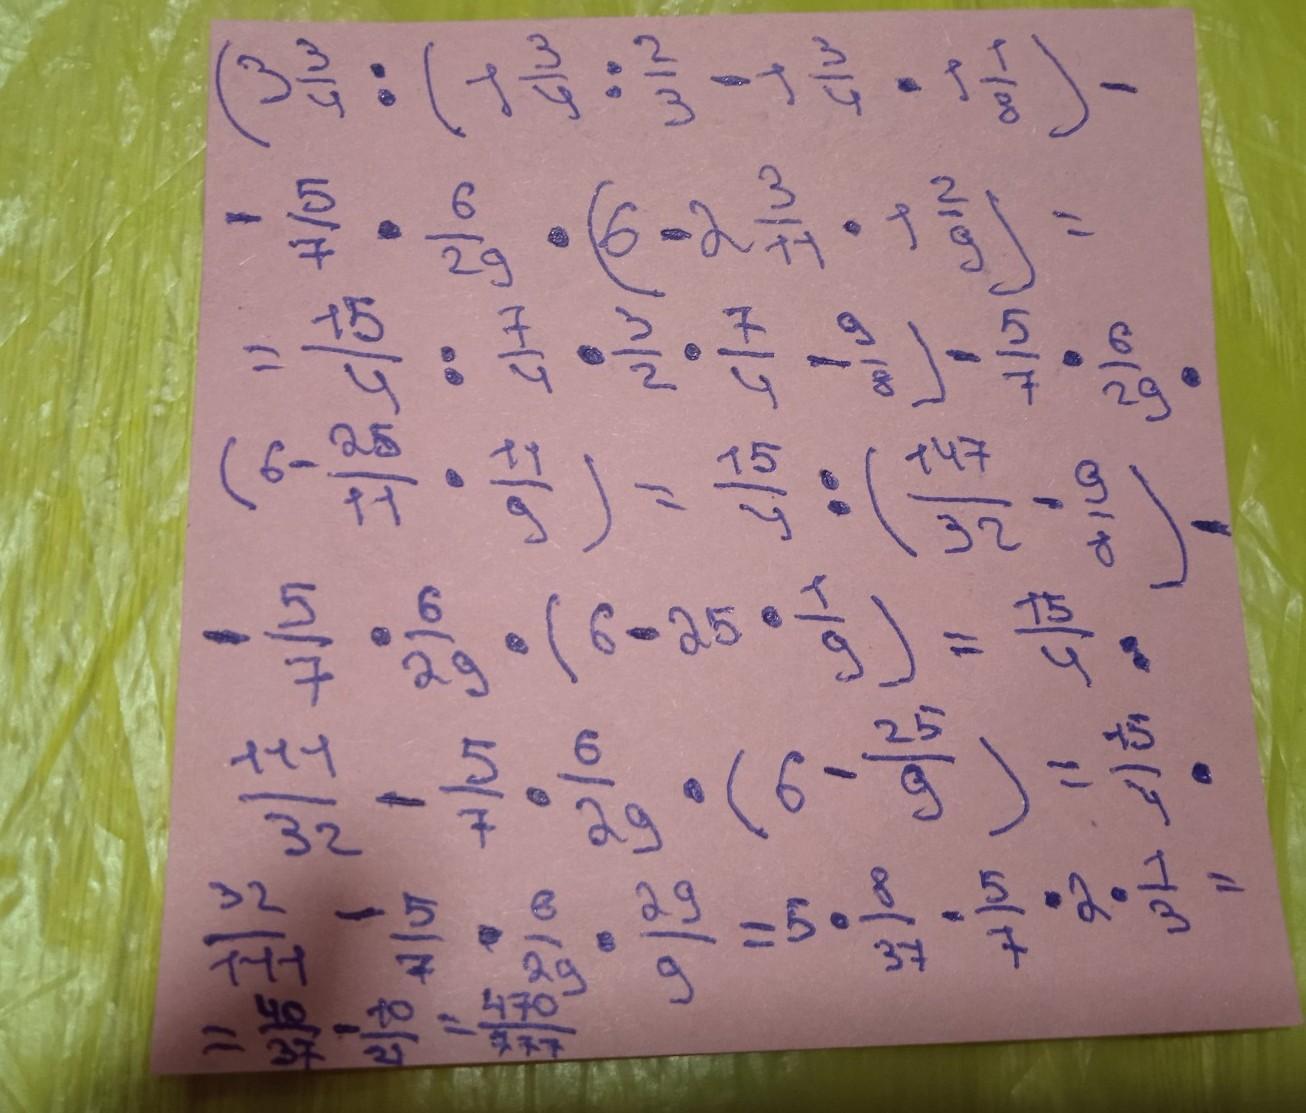 (3 3/4 : (1 3/4 : 2/3 - 1 3/4 · 1 1/8) -
- 5/7 · 6/29 · (6 - 2 3/11 · 1 2/9) =
= 15/4 : 7/4 · 3/2 · 7/4 - 9/8) - 5/7 · 6/29 ·
(6 - 25/11 · 11/9) = 15/4 : (147/32 - 9/8) -
- 5/7 · 6/29 · (6 - 25 · 1/9) = 15/4 :
111/32 - 5/7 · 6/29 · (6 - 25/9) = 15/4 ·
32/111 - 5/7 · 6/29 · 29/9 = 5 · 8/37 - 5/7 · 2 · 1/3 =
= 40/37 - 10/21 = 470/777